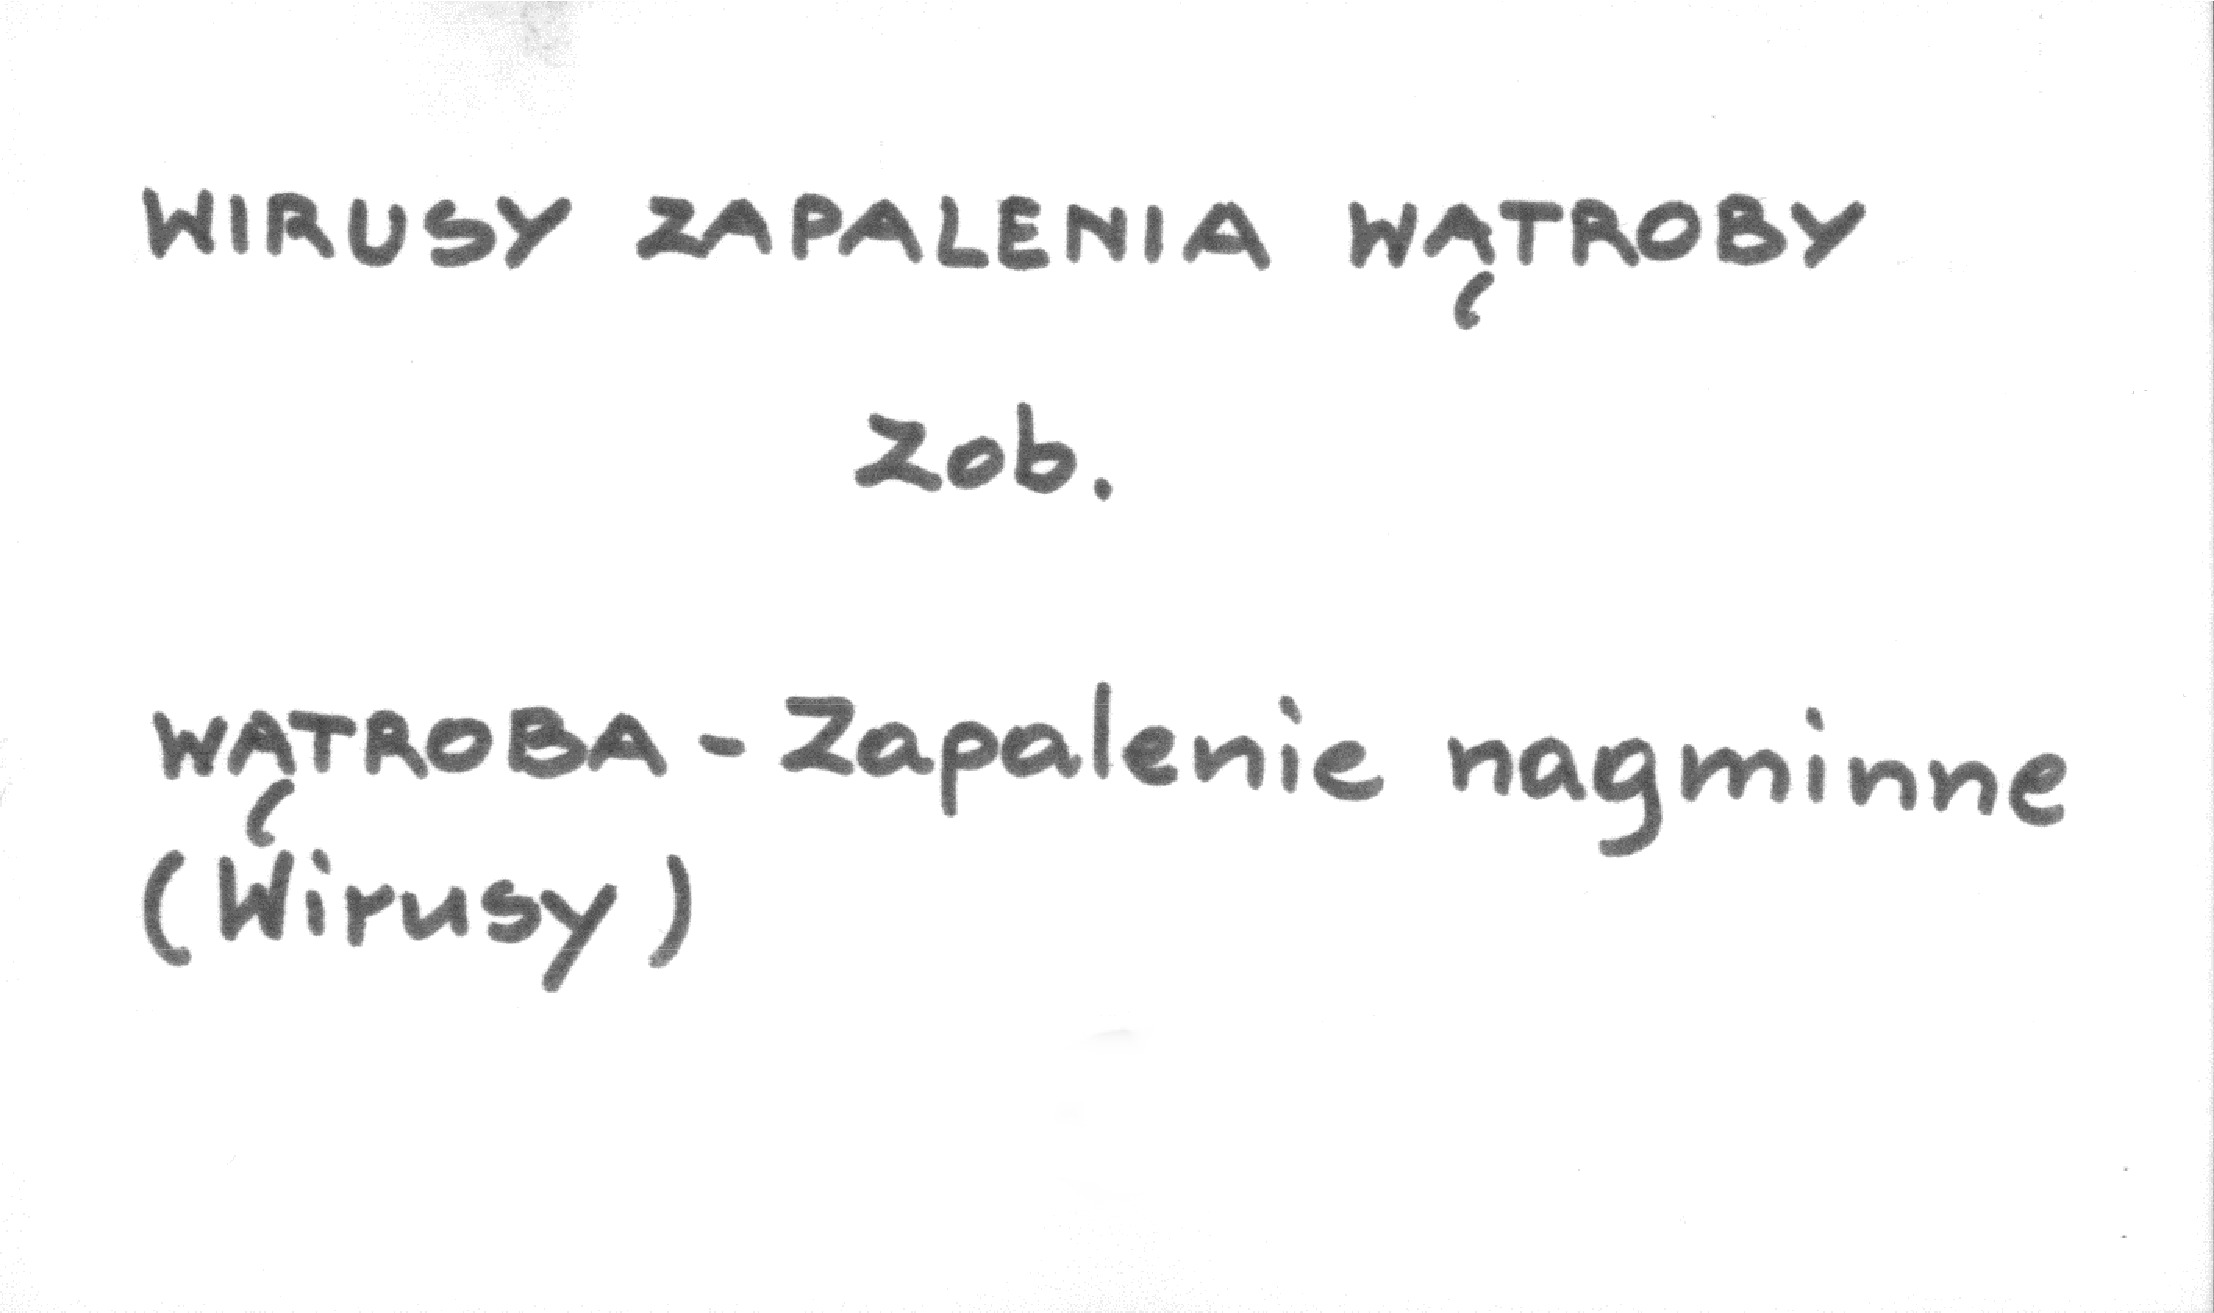 WIRUSY ZAPALENIA WĄTROBY
Zob.
WĄTROBA - Zapalenie nagminne
(Wirusy)